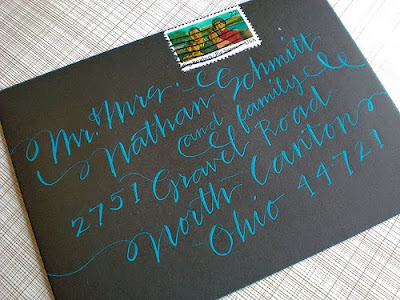 Mr. & Mrs.
Nathan Schmitt
and family
2751 Gravel Road
North Canton
Ohio 44721